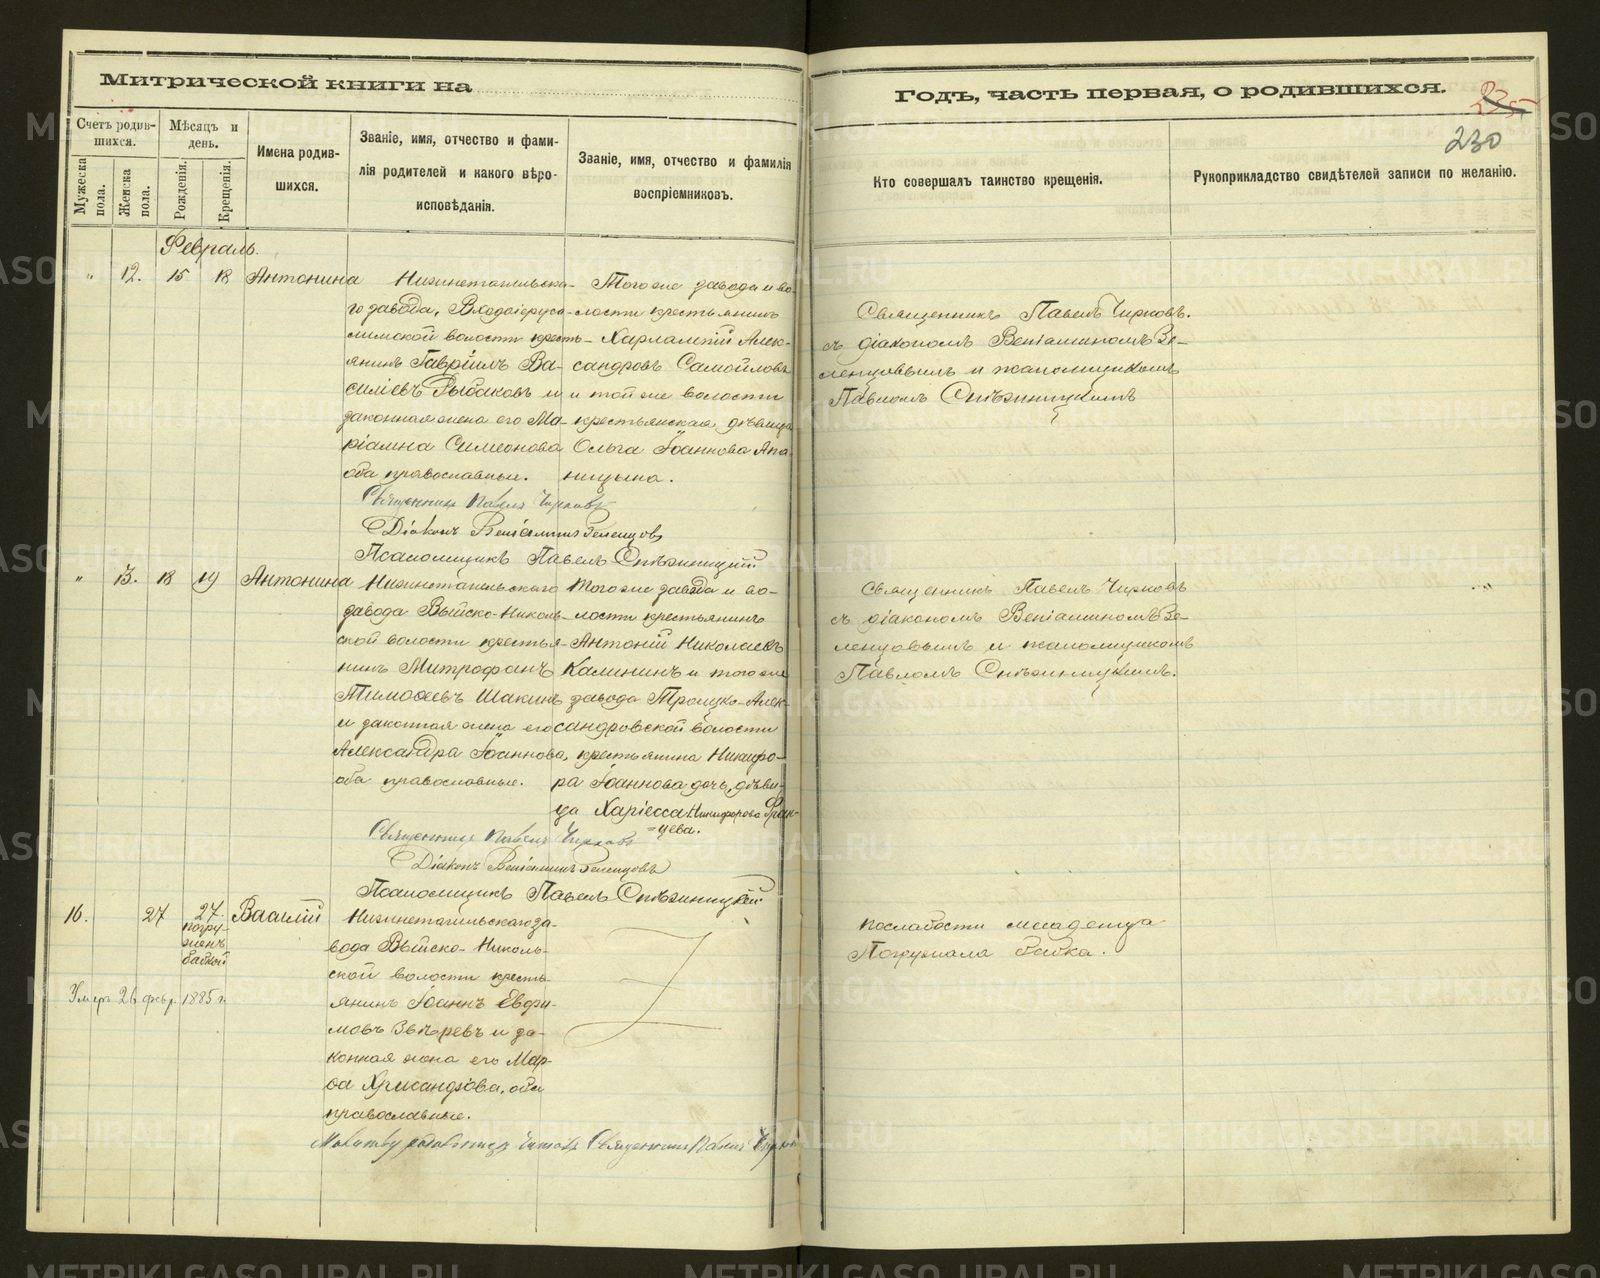 Митрической книги на
Годъ, часть первая, о родившихся.
235
230
Счетъ родив-
шихся.
Мѣсяцъ и
день.
Мужеска
пола.
Женска
пола.
Рожденія.
Крещенія.
Имена родив-
шихся.
Званіе, имя, отчество и фами-
лія родителей и какого вѣро-
исповѣданія.
Званіе, имя, отчество и фамилія
воспріемниковъ.
Кто совершалъ таинство крещенія.
Рукоприкладство свидѣтелей записи по желанію.
Февраль.
" 12. 15 18 Антонина
Нижнетагильска-
го завода, Владоіеруса-
лимской волости кресть-
янинъ Гавріилъ Ва-
силіевъ Рыбаковъ и
законная жена его Ма-
ріамна Симеонова
оба православные.
Того же завода и во-
лости крестьянинъ
Харлампій Алек-
сандровъ Самойловъ
и той же волости
крестьянская дѣвица
Ольга Іоаннова Апа-
ницына.
Священникъ Павелъ Чирковъ.
съ діакономъ Веніаминомъ Зе-
ленцовымъ и псаломщикомъ
Павломъ Снѣжницкимъ
Священникъ Павелъ Чирковъ
Діаконъ Веніаминъ Зеленцовъ
Псаломщикъ Павелъ Снѣжницкій
" 13. 18 19 Антонина
Нижнетагильскаго
завода Выйско-Николь-
ской волости крестья-
нинъ Митрофанъ
Тимоѳеевъ Шакинъ
и законная жена его
Александра Іоаннова,
оба православные.
Того же завода и во-
лости крестьянинъ
Антоній Николаевъ
Калининъ и того же
завода Троицко-Алек-
сандровской волости
крестьянина Никифо-
ра Іоаннова дочь, дѣви-
ца Харіесса Никифорова Фран-
=цева.
Священникъ Павелъ Чирковъ
съ діакономъ Веніаминомъ Зе-
ленцовымъ и псаломщикомъ
Павломъ Снѣжницкимъ.
Священникъ Павелъ Чирковъ
Діаконъ Веніаминъ Зеленцовъ
Псаломщикъ Павелъ Снѣжницкій
16. 27 27. Василій
погру-
женъ
бабкой
Умеръ 26 февр. 1885 г.
Нижнетагильскаго за-
вода Выйско-Николь-
ской волости кресть-
янинъ Іоаннъ Евфи-
мовъ Звѣревъ и за-
конная жена его Мар-
ѳа Хрисанфова, оба
православные.
по слабости младенца
Погружала бабка.
Молитву читалъ Священникъ Павелъ Чирковъ
METRIKI.GASO-URAL.RU